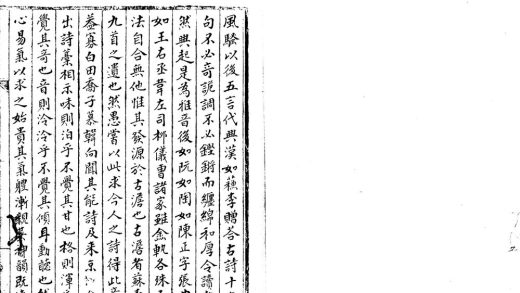 風騷以後五言代興漢如蘇李贈荅古詩十
句不必奇詭調不必鏗鏘而纏綿和厚令讀
然興起是為雅音後如阮如陶如陳正字張
如王右丞韋左司柳儀曹諸家雖金軌各殊
法自合無他惟其發源於古源也古源者蘇
九首之遺也然愚嘗以此求今人之詩得此
蓋寡白田喬子慕韓向聞其能詩及来京
出詩藁相示味則泊乎不覺其甘也格則渾
覺其奇也音則泠泠乎不覺其傾耳動聽也
心易氣以求之始貴其氣體漸親韻既